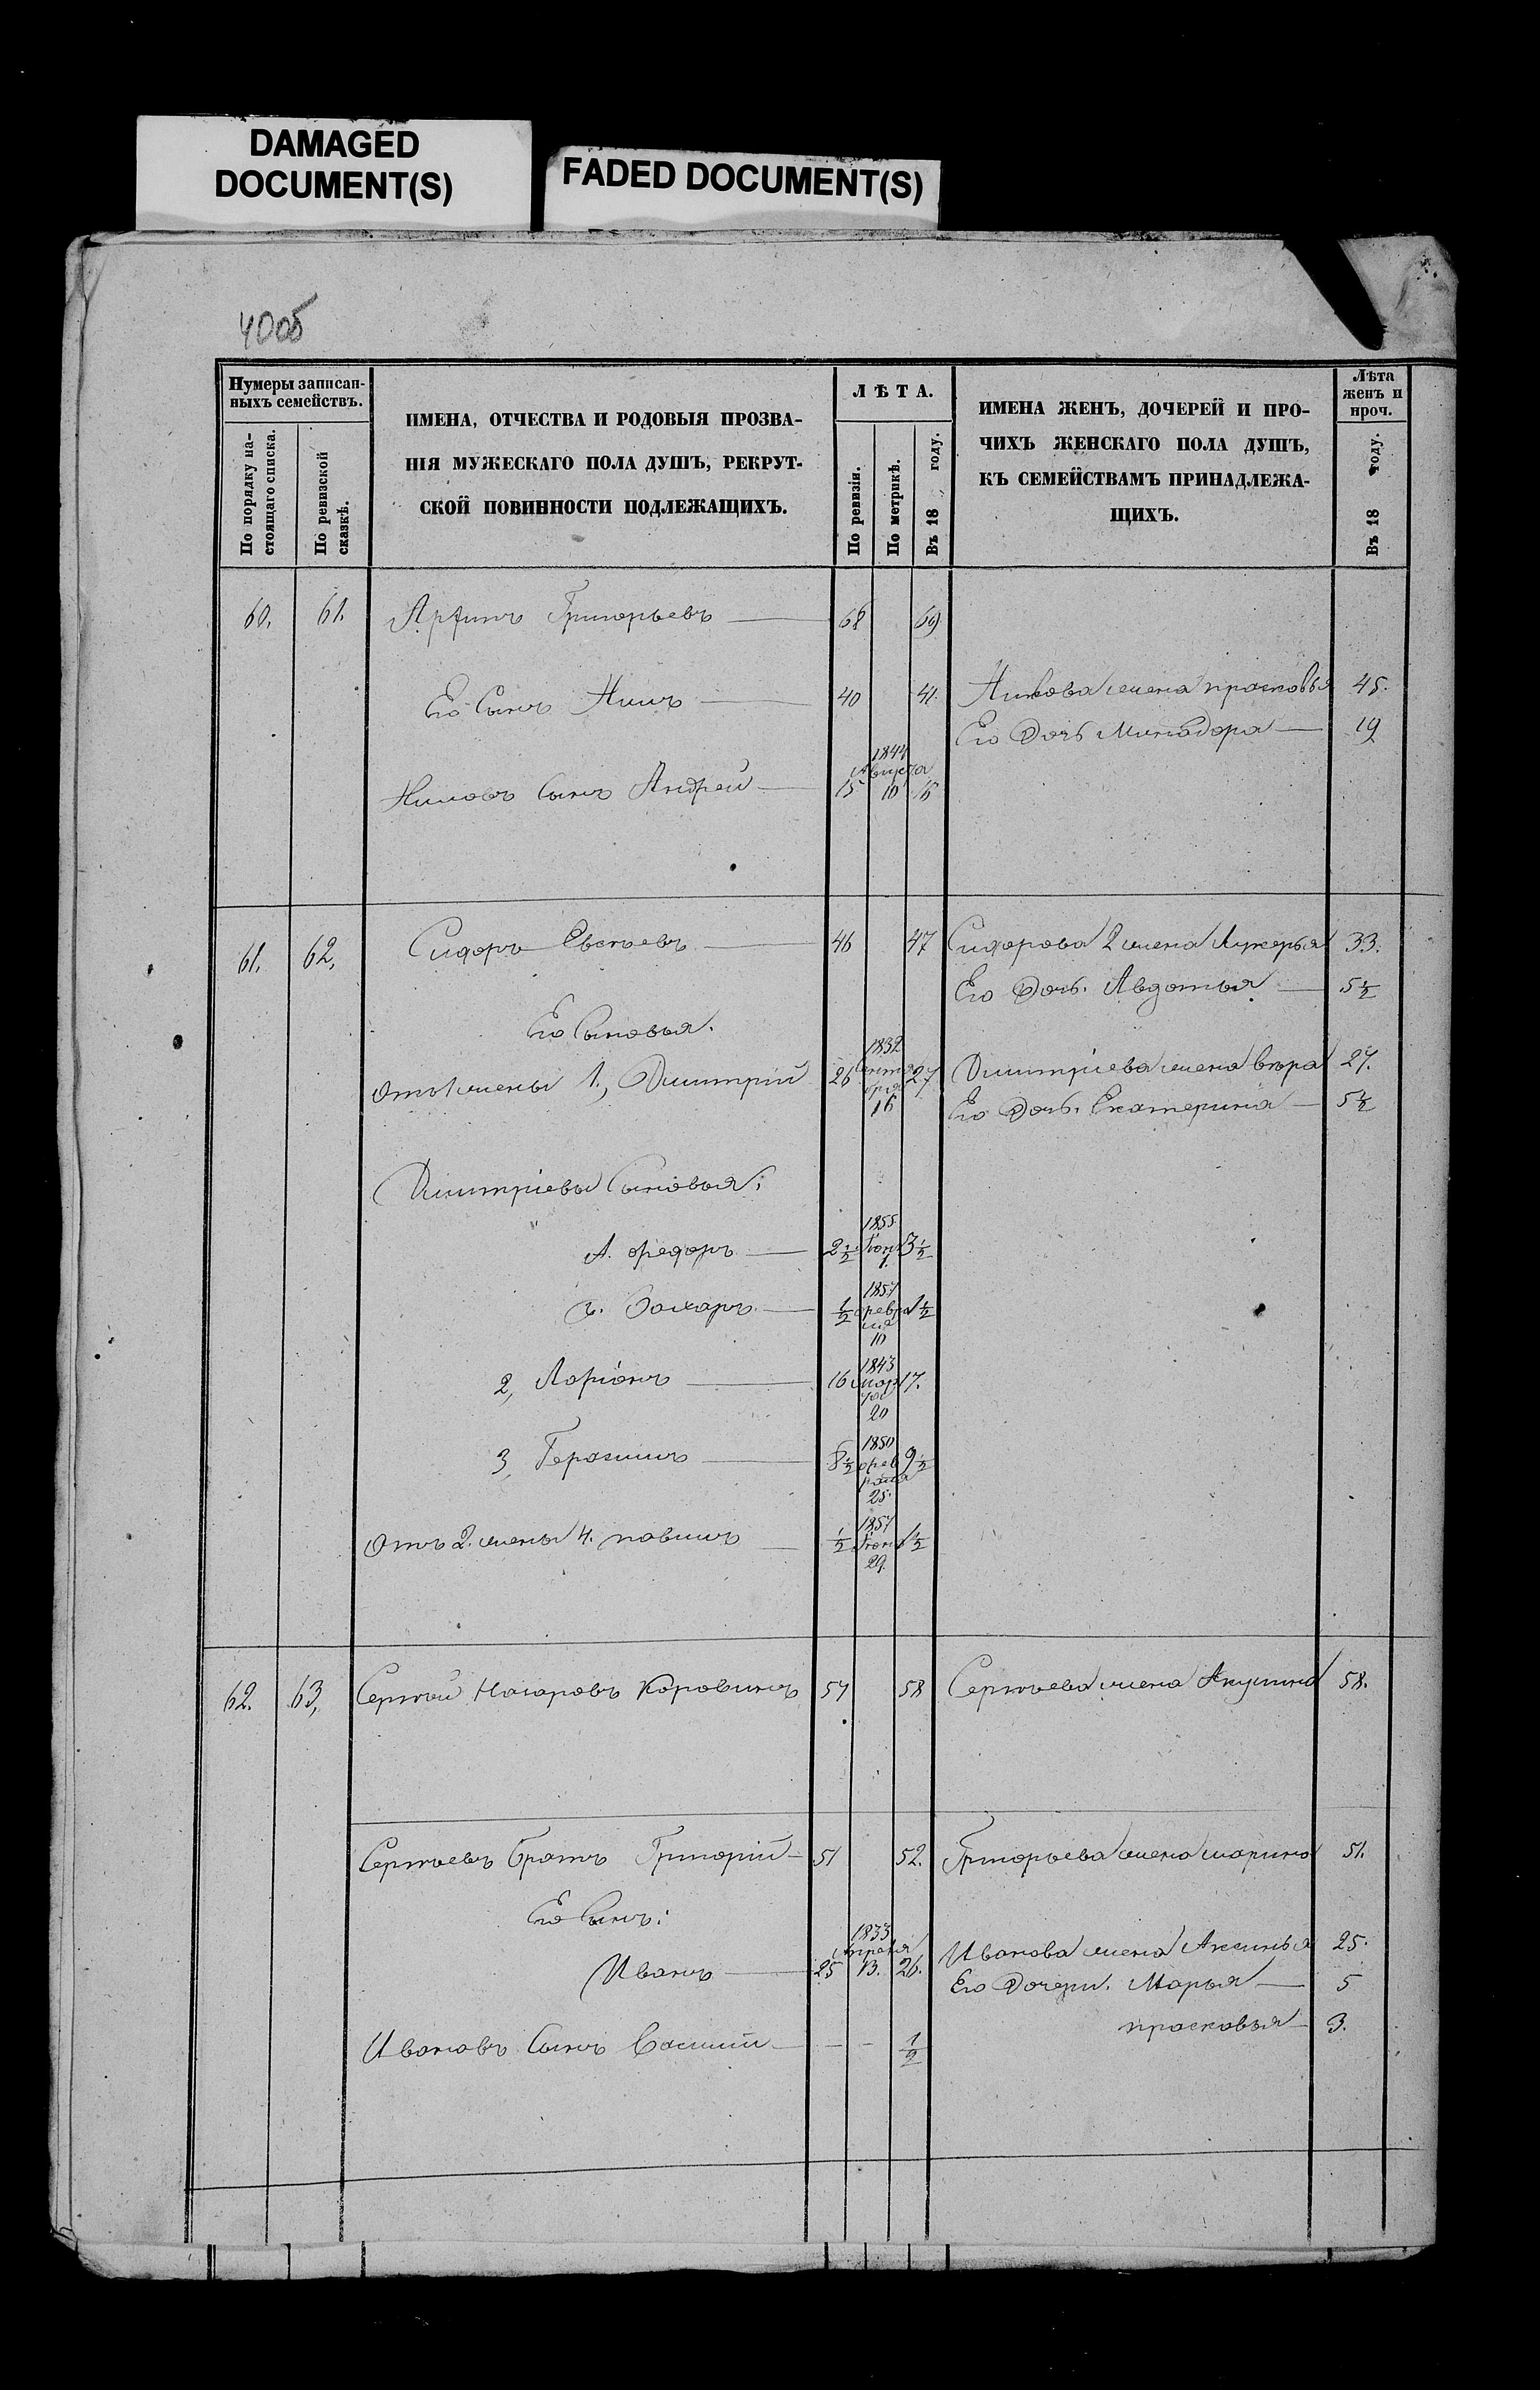 DAMAGED
DOCUMENT(S)
FADED DOCUMENT(S)
40об
Нумеры записан-
ныхъ семействъ.
По порядку на-
стоящаго списка.
По ревизской
сказкѣ.
ИМЕНА, ОТЧЕСТВА И РОДОВЫЯ ПРОЗВА-
НІЯ МУЖЕСКАГО ПОЛА ДУШЪ, РЕКРУТ-
СКОЙ ПОВИННОСТИ ПОДЛЕЖАЩИХЪ.
ЛѢТА.
По ревизіи.
По метрикѣ.
Въ 18 году.
ИМЕНА ЖЕНЪ, ДОЧЕРЕЙ И ПРО-
ЧИХЪ ЖЕНСКАГО ПОЛА ДУШЪ,
КЪ СЕМЕЙСТВАМЪ ПРИНАДЛЕЖА-
ЩИХЪ.
Лѣта
женъ и
проч.
Въ 18 году.
60. 61. Григорьевъ 68 69
Его Сынъ Нилъ 40 41. жена прасковья 45.
Его Дочь Минодора 19
1844
Августа
Ниловъ Сынъ Андрей 15 10 16
61. 62, Сидоръ Евсѣевъ 46 47 Сидорова 2 жена Лукерья 33.
Его Дочь. Авдотья 5½
Его Сыновья.
1832
Сентября
16
Отъ 1 жены 1, Димитрій 26 27 Димитріева жена вѣра 27.
Его Дочь. Екатерина 5½
Димитріевы Сыновья;
1855
Іюня
1.
А. Ѳедоръ 2½ 3½
1857
февраля
10
Захаръ ½ 1½
1843
Марта
20
2, Ларіонъ 16 17.
1850
февраля
25.
3, Герасимъ 8½ 9½
1857
Іюня
29.
Отъ 2. жены 4. павилъ ½ 1½
62. 63, Сергѣй Назаровъ Коровинъ 57 58 Сергѣева жена Акулина 58.
Сергѣевъ Братъ Григорій 51 52. Григорьева жена марина 51.
Его Сынъ:
1833
Апрѣля
Иванъ 25 13. 26. Иванова жена Аксинья 25.
Его Дочери. Марья 5
прасковья 3.
Ивановъ Сынъ Василій - - ½